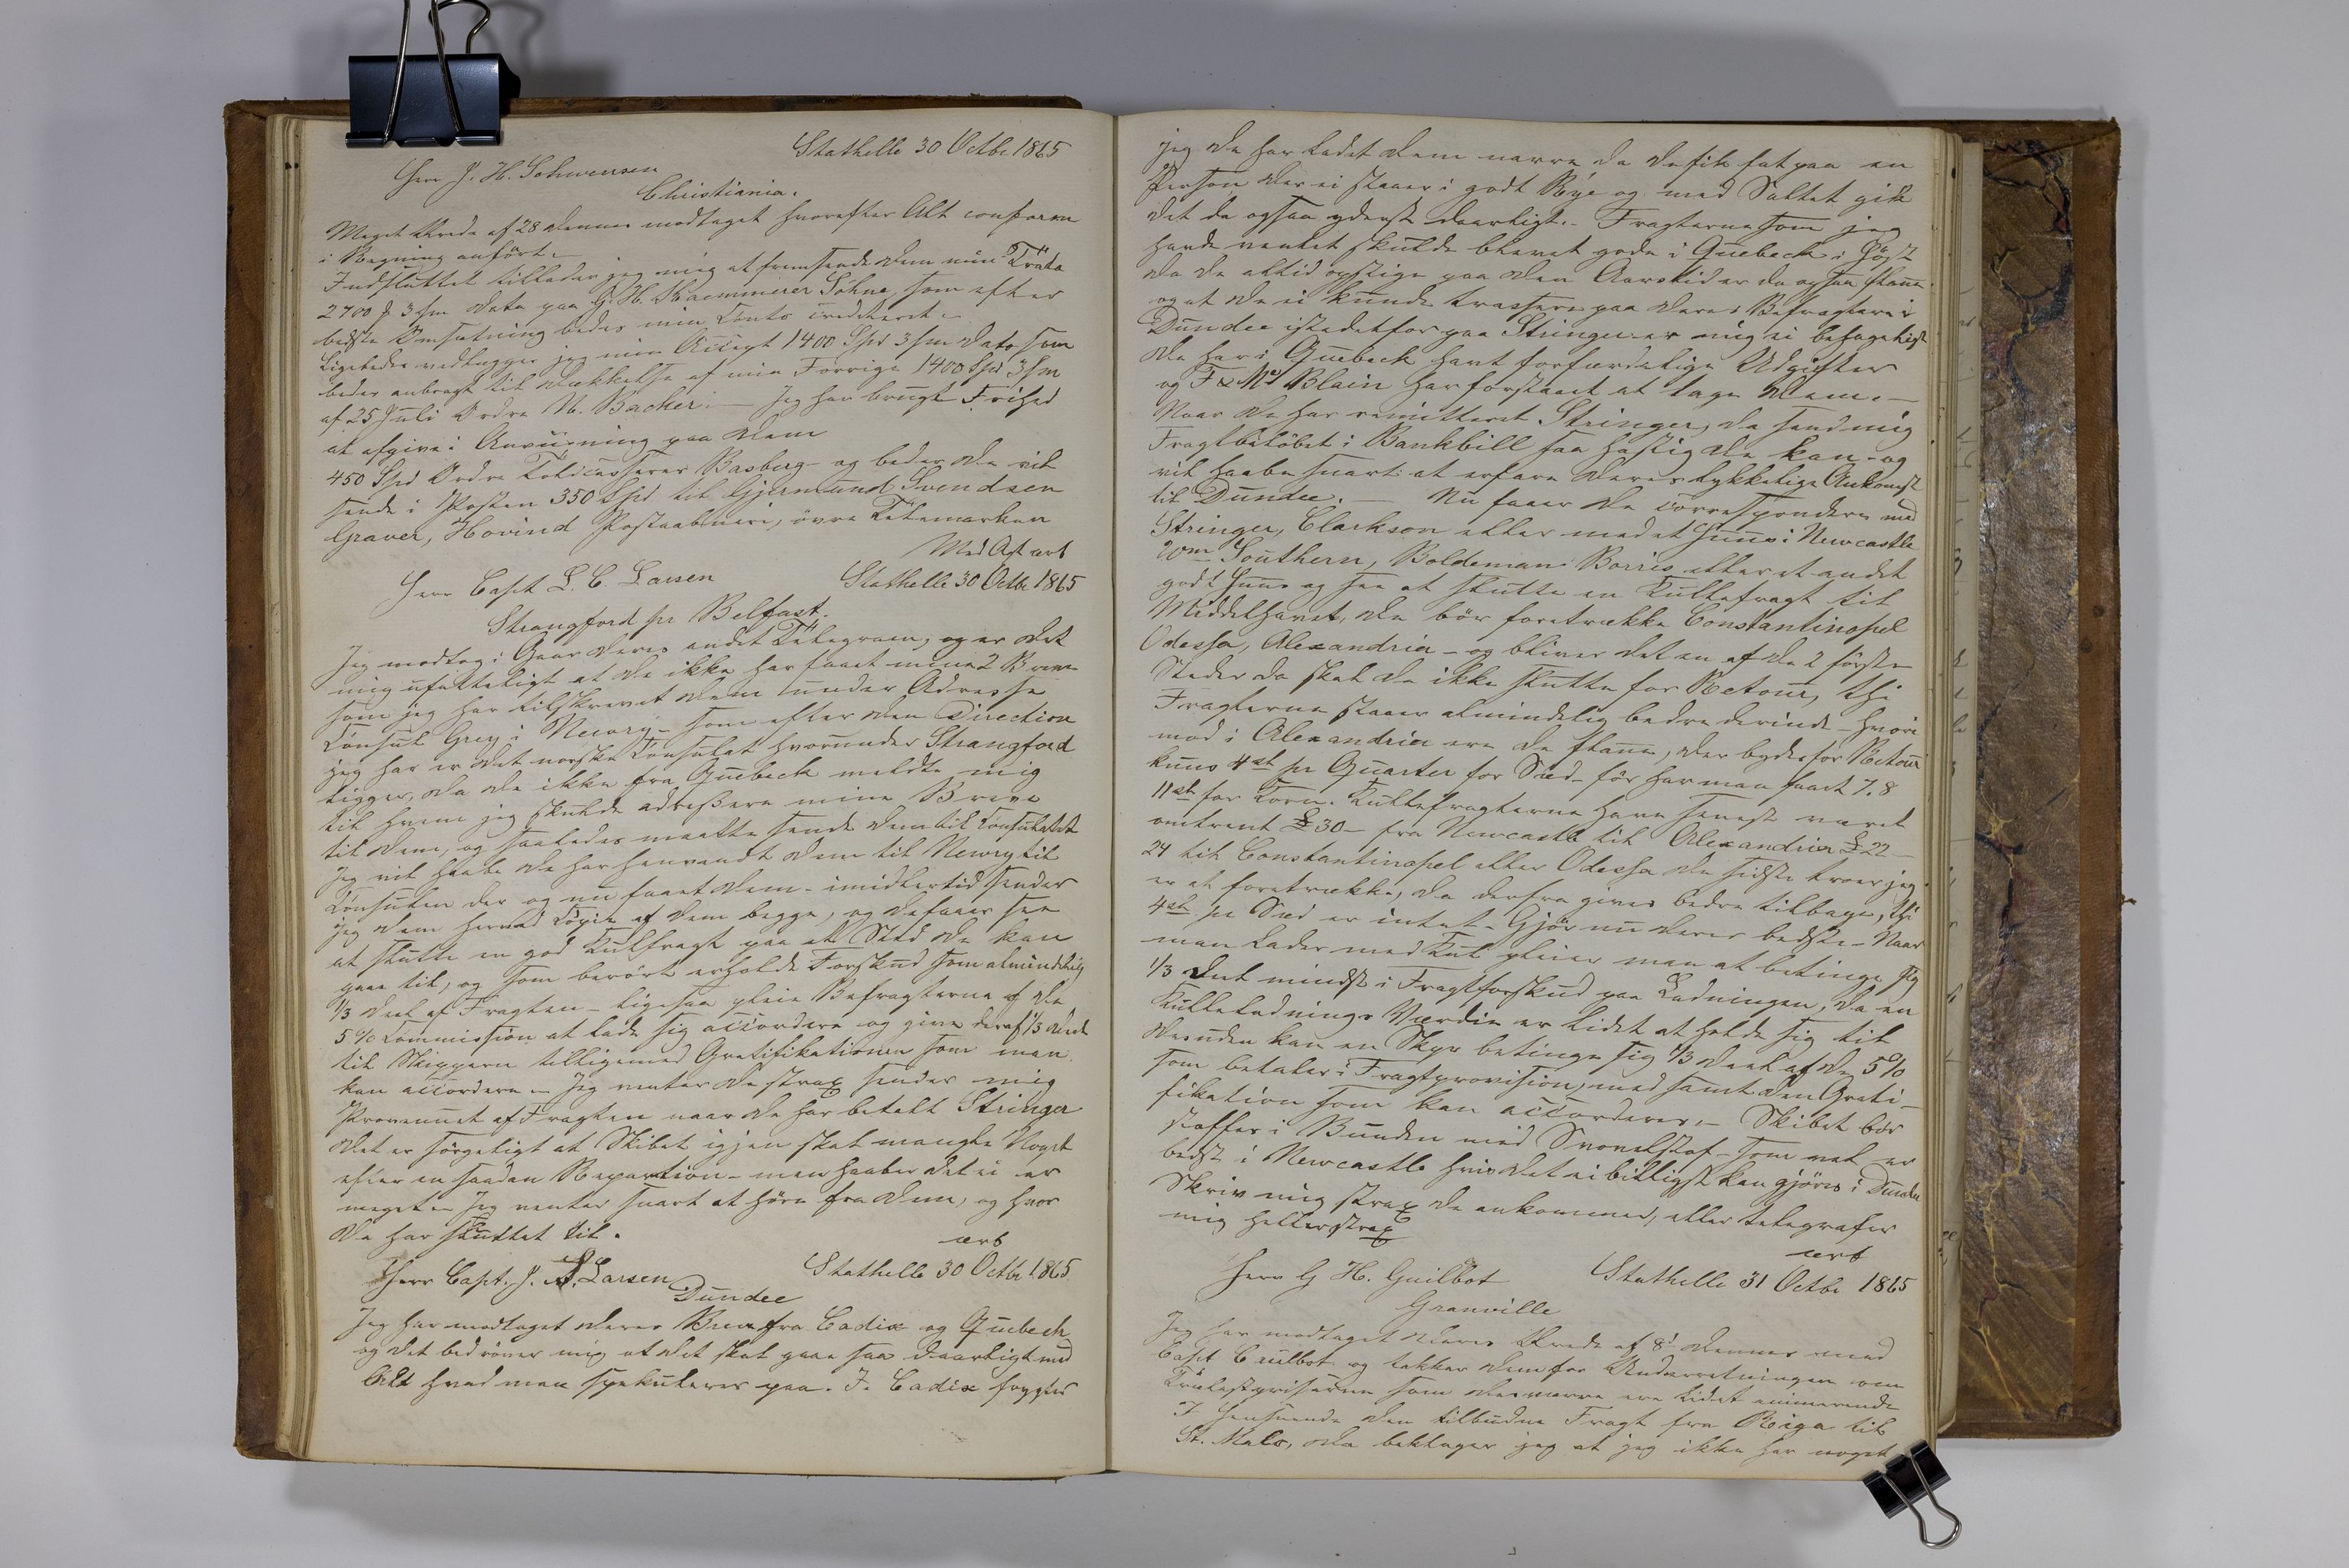 Stathelle 30 Octbr 1865
Herr J. H. Schwensen
Christiania.
Meget Ærede af 28 dennes modtaget hvorefter Alt conform
i Regning anført.
Indsluttet tillader jeg mig at fremsende dem min Tratta
2700 3/m dato paa G. H. Kaemmerer Söhne, som efter
bedste Omsætning bedes min Conto crediteret.
Ligeledes vedlægger jeg min Accept 1400 Spd 3/m dato som
bedes anbragt til Dækkelse af min Forrige 1400 Spd 3/m
af 25 Juli Ordre N. Backer. — Jeg har brugt Frihed
at afgive i Anviisning paa dem
450 Spd Ordre Toldcasserer Basberg og beder De vil
sende i Posten 350 Spd til Gjermund Svendsen
Graver, Hovind Postaabneri, øvre Tellemarken
Med Agt arb
Stathelle 30 Octbr 1865
Herr Capt L. C. Larsen
Strangford pr Belfast.
Jeg modtog i Gaar deres andet Telegram, og er det
mig ufatteligt at De ikke har faaet mine 2 Breve
som jeg har tilskrevet dem under Adresse
Consul Grey i Newry – som efter den Direction
jeg har er det norske Consulat hvorunder Strangford
ligger, da De ikke fra Quebeck meldte mig
til hvem jeg skulde adressere mine Breve
til dem, og saaledes maatte sende dem til Consulatet
Jeg vil haabe De har henvendt dem til Newry til
Consulen der og nu faaet dem – imidlertid sender
jeg dem herved Copie af dem begge, og De faaer see
at slutte en god Kulfragt paa et Sted De kan
gaae til, og som berört erholde Forskud som almindelig
1/3 deel af Fragten – ligesaa pleie Befragterne af de
5 % Commission at lade sig accordere og give deraf 1/3 deel
til Skipperen tilligemed Gratifikationen som man
kan accordere – Jeg venter De strax sender mig
Provenuet af Fragten naar De har betalt Stringer
Det er sörgeligt at Skibet igjen skal mangle Noget
efter en saadan Reparation – men haaber det ei er
meget – Jeg venter snart at höre fra dem, og hvor
De har sluttet til.
arb
Stathelle 30 Octbr 1865
Herr Capt. J. A. Larsen
Dundee
Jeg har modtaget deres Breve fra Cadix og Quebeck
og det bedröver mig at det skal gaae saa daarligt med
Alt hvad man spekulerer paa. I Cadix frygter
jeg De har ladet dem narre da De fik fat paa en
Person der ei staaer i godt Rye og med Saltet gik
det da ogsaa yderst daarligt. – Fragterne som jeg
havde ventet skulde blevet gode i Quebeck i Høst
da de altid opstige paa den Aarstid er da ogsaa flaue
og at De ei kunde trassere paa deres Befragtere i
Dundee istedetfor paa Stringer er mig ei behageligt
De har i Quebeck havt forfærdelige Udgifter
og F & McBlain har forstaaet at tage dem. —
Naar De har remitteret Stringer, da send mig
Fragtbelöbet i Bankbill saa hastig De kan – og
vil haabe snart at erfare deres lykkelige Ankomst
til Dundee. — Nu faaer De correspondere med
Stringer, Clarkson eller med et Huus i Newcastle
Wm Southern, Boldeman Borries eller et andet
godt Huus og see at slutte en Kullefragt til
Middelhavet, De bör foretrække Constantinopel
Odessa, Alexandria – og bliver det en af de 2 förste
Steder da skal De ikke slutte for Retour, thi
Fragterne staaer almindelig bedre derinde – hvori
mod i Alexandria ere de flaue, der bydes for Retour
kuns 4 sh pr Quarter for Sæd – för har man faaet 7. 8
11 sh for Korn. Kullefragterne have senest været
omtrent £ 30 – fra Newcastle til Alexandria £ 22 –
24 til Constantinopel eller Odessa de sidste troer jeg
er at foretrække, da derfra gives bedre tilbage, thi
4 sh pr Sæd er intet. Gjör nu deres bedste – Naar
man lader med Kul pleier man at betinge sig
1/3 deel mindst i Fragtforskud paa Ladningen, da en
Kulleladnings Værdie er lidet at holde sig til
desuden kan en Skpr betinge sig 1/3 deel af de 5 %
som betales i Fragtprovision, med samt den Grati-
fikation som kan accorderes. – Skibet bör
staffes i Bunden med Svovelstof – som vel er
bedst i Newcastle hvis det ei billigst kan gjöres i Dundee
Skriv mig strax De ankommer, eller telegrafer
mig heller strax
arb
Stathelle 31 Octbr 1865
Herr G H. Guilbot
Granville
Jeg har modtaget deres Ærede af 8d dennes med
Capt Cruilbot og takker dem for Underretningen om
Trælastpriserne som desværre ere lidet animerende
I Henseende den tilbudne Fragt fra Riga til
St. Malo, da beklager jeg at jeg ikke har noget